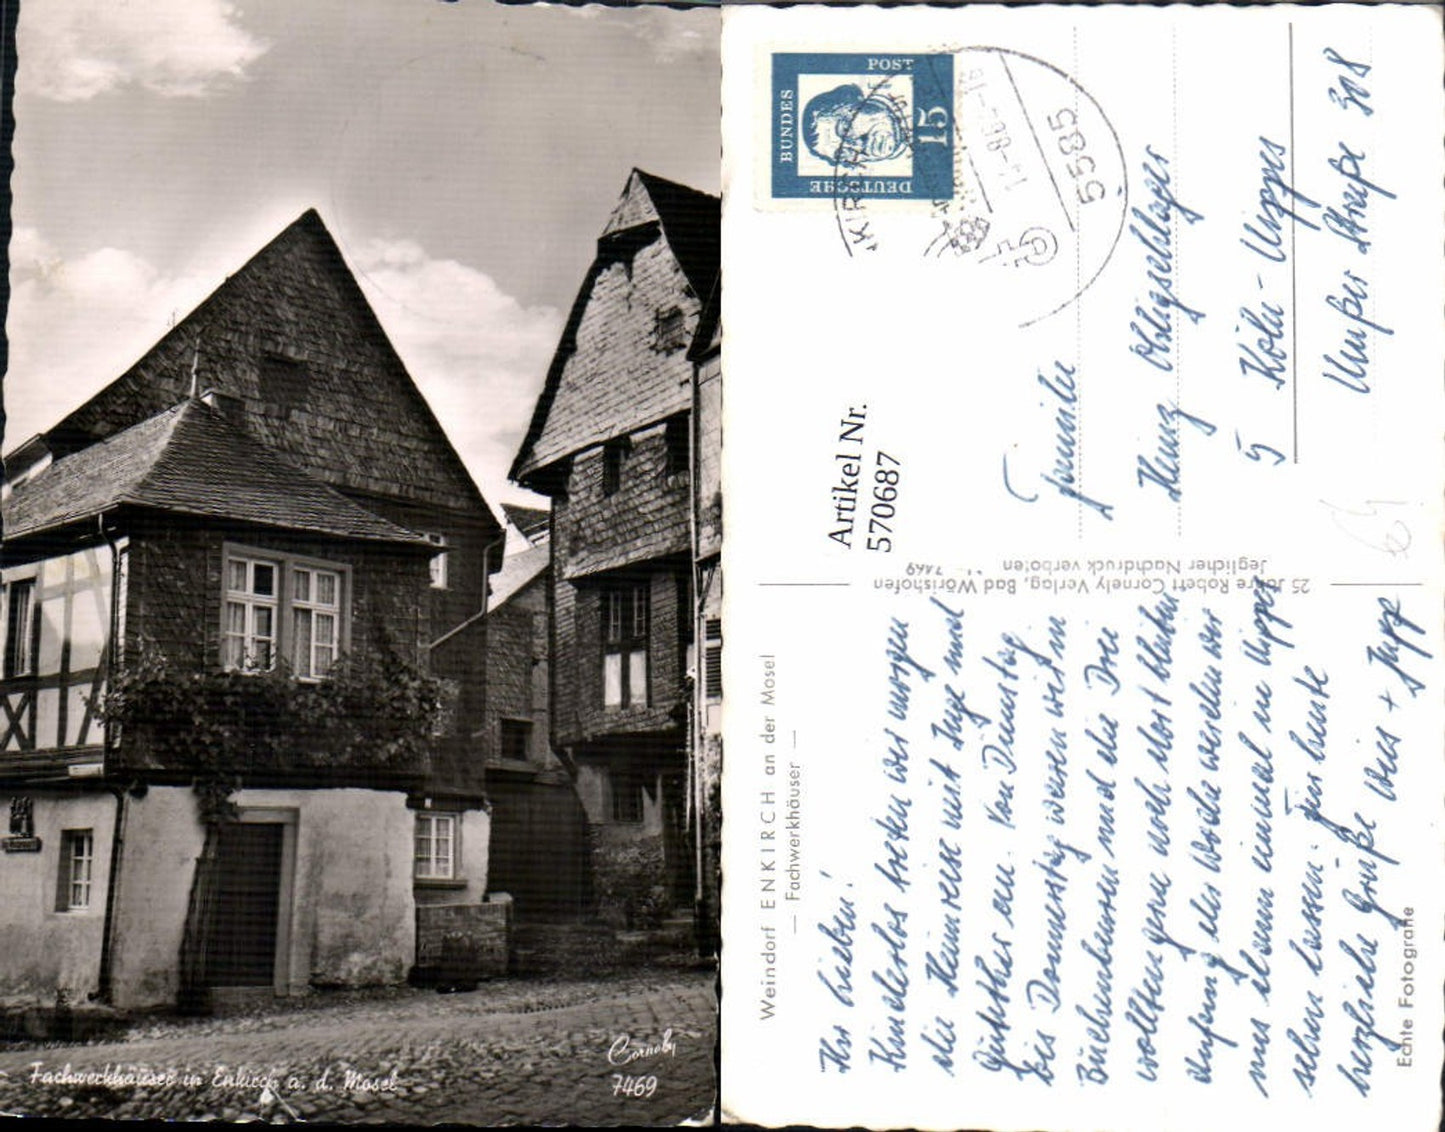 Fachwerkhäuser in Enkirch a. d. Mosel
Cornely
7469
Weindorf ENKIRCH an der Mosel
— Fachwerkhäuser —
Ihr Lieben!
Kinderlos treten wir morgen
die Heimreise mit Inge und
Günther an. Von Dienstag
bis Donnerstag waren wir in
Büchenbeuren und die Drei
wollten gerne noch dort bleiben
Anfang der Woche werden wir
uns dann einmal in Nippes
sehen lassen. Für heute
herzliche Grüße Weis + Jupp
Echte Fotografie
25 Jahre Robert Cornely Verlag, Bad Wörishofen
Jeglicher Nachdruck verboten
7469
Artikel Nr.
570687
DEUTSCHE
BUNDES
POST
15
5585
Familie
Heinz
5 Köln-Nippes
Neußer Straße 308